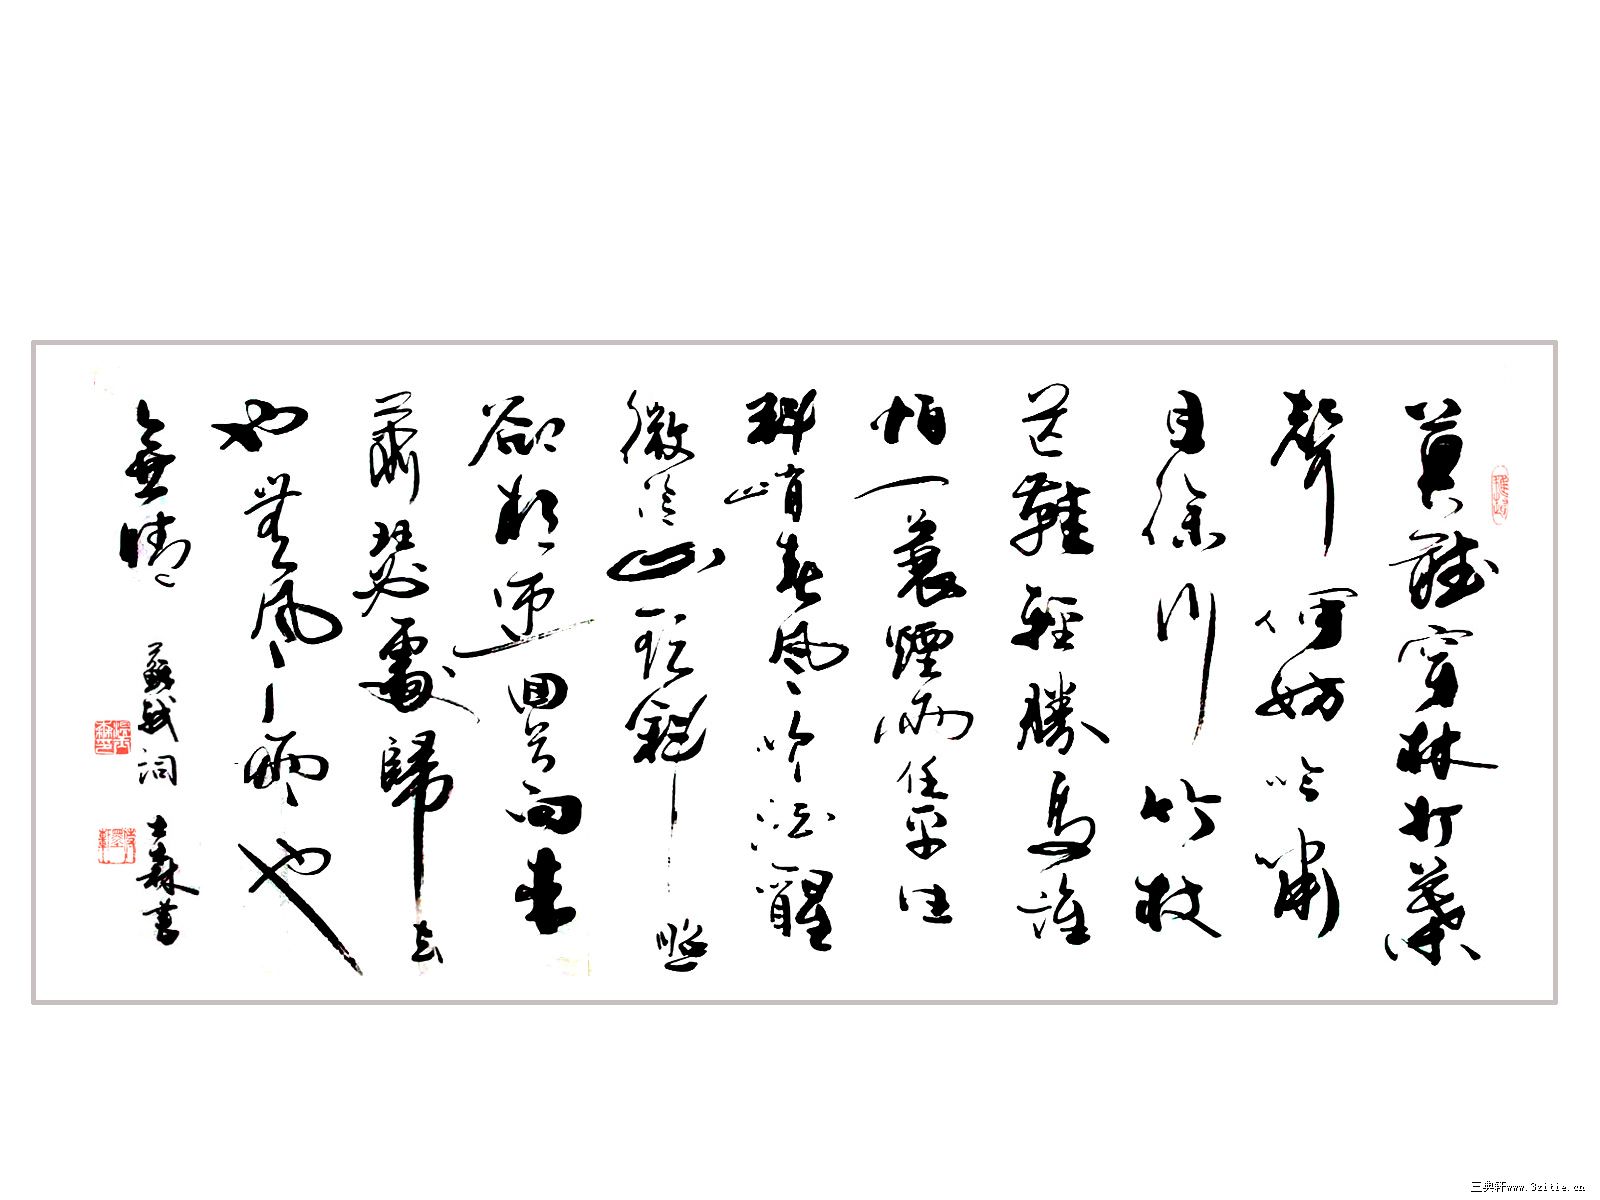 莫聽穿林打葉
聲何妨吟嘯
且徐行竹杖
芒鞋輕勝馬誰
怕一蓑煙雨任平生
料峭春風吹酒醒
微冷山頭斜照
卻相迎回首向來
蕭瑟處歸去
也無風雨也
無晴 蘇軾詞 士森書
三典轩www.3zitie.cn